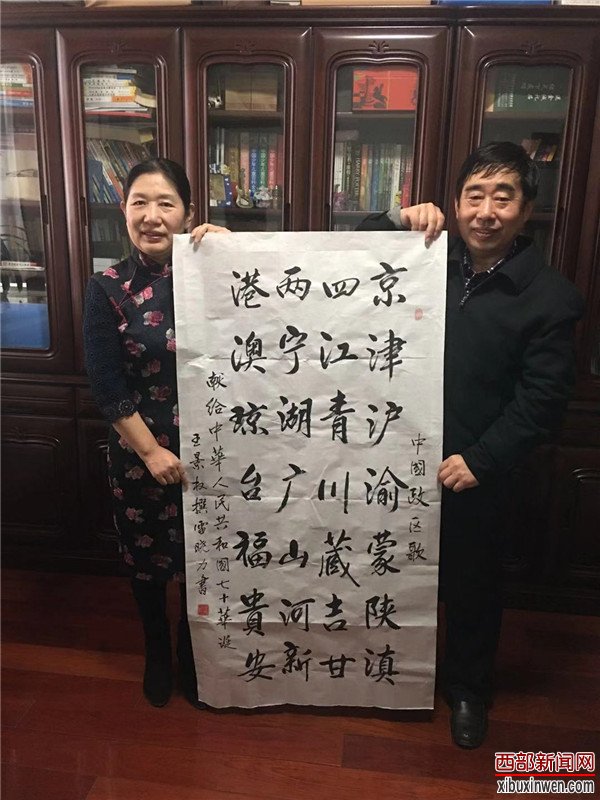 中國政区歌
京津沪渝蒙陕滇
四江青川藏吉甘
两宁湖广山河新
港澳琼台福貴安
献给中華人民共和國七十華诞
王景权撰雷晓力書
西部新闻网
xibuxinwen.com